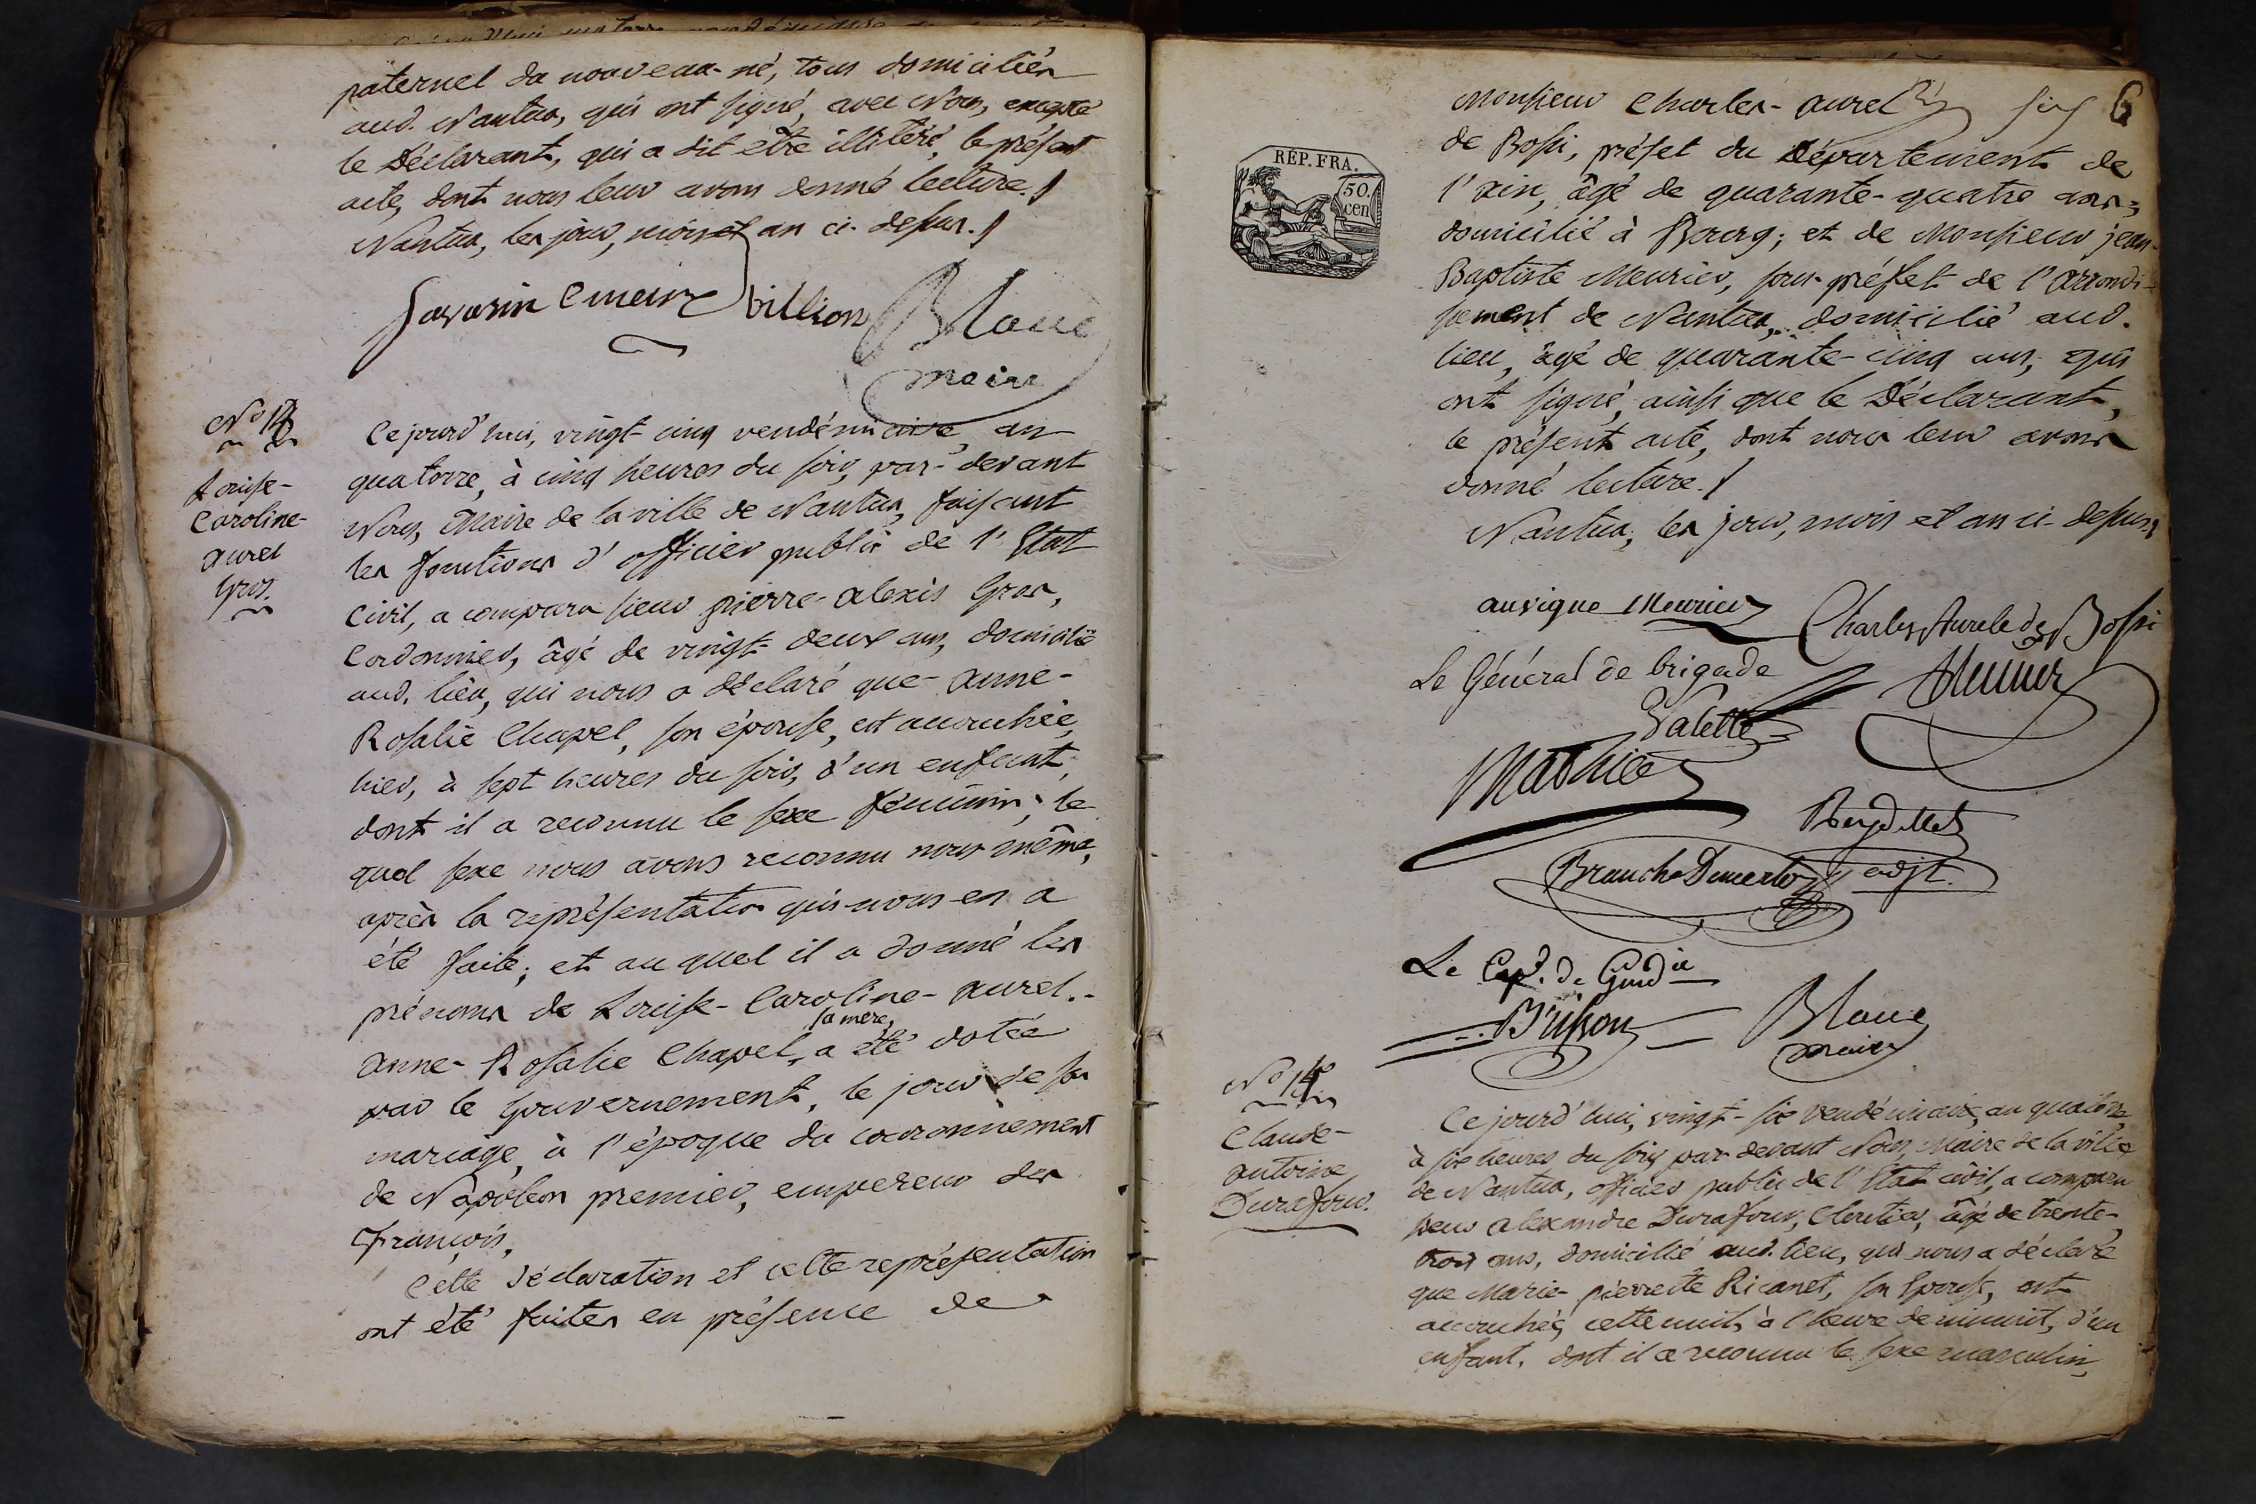 paternel du nouveau-né, tous domiciliés
aud. Nantua, qui ont signé, avec Nous, excepté
le Déclarant, qui a dit être illitéré, le présent
acte, dont nous leur avons donné lecture./
Nantua, les jour, mois et an ci-dessus./
Savarin Cuneir villion Blanc
maire
N.o 13
Louise-
Caroline-
aurel
Gros.
Ce jourd'hui, vingt-cinq vendémiaire, an
quatorze, à cinq heures du soir, par-devant
Nous, Maire de la ville de Nantua, faisant
les fonctions d'officier public de l'Etat
Civil, a comparu sieur pierre-alexis Gros,
Cordonnier, âgé de vingt-deux ans, domicilié
aud. lieu, qui nous a déclaré que anne-
Rosalie Chapel, son épouse, est accouchée,
hier, à sept heures du soir, d'un enfant,
dont il a reconnu le sexe féminin; le
quel sexe nous avons reconnu nous même,
après la représentation qui nous en a
été faite; et au quel il a donné les
prénoms de Louise-Caroline-aurel.-
sa mère,
anne-Rosalie Chapel, a été dotée
par le Gouvernement, le jour de son
mariage, à l'époque du couronnement
de Napoléon premier, empereur des
françois.
Cette déclaration et cette représentation
ont été faites en présence de
6
Monsieur Charles-aurel
de Bossi, préfet du Département de
l'ain, âgé de quarante-quatre ans,
domicilié à Bourg; et de Monsieur jean-
Baptiste Meunier, sous-préfet de l'arrondi-
ssement de Nantua, domicilié aud.
lieu, âgé de quarante-cinq ans, qui
ont signé, ainsi que le Déclarant,
le présent acte, dont nous leur avons
donné lecture./
Nantua, les jour, mois et an ci-dessus,
RÉP. FRA.
50.
cen
auvigne Meunier Charles Aurele de Bossi
Le Général de brigade
Valette Meunier
Mathieu
adjt.
Le Cap.e de Gend.ie
Buisson Blanc
maire
N.o 14.
Claude-
antoine
Durafour.
Ce jourd'hui, vingt-six vendémiaire, an quatorze,
à six heures du soir, par-devant Nous, Maire de la ville
de Nantua, officier public de l'Etat civil, a comparu
sieur alexandre Durafour, Cloutier, âgé de trente-
trois ans, domicilié aud. lieu, qui nous a déclaré
que Marie-pierrette Ricanet, son Epouse, est
accouchée, cette nuit, à l'heure de minuit, d'un
enfant, dont il a reconnu le sexe masculin,